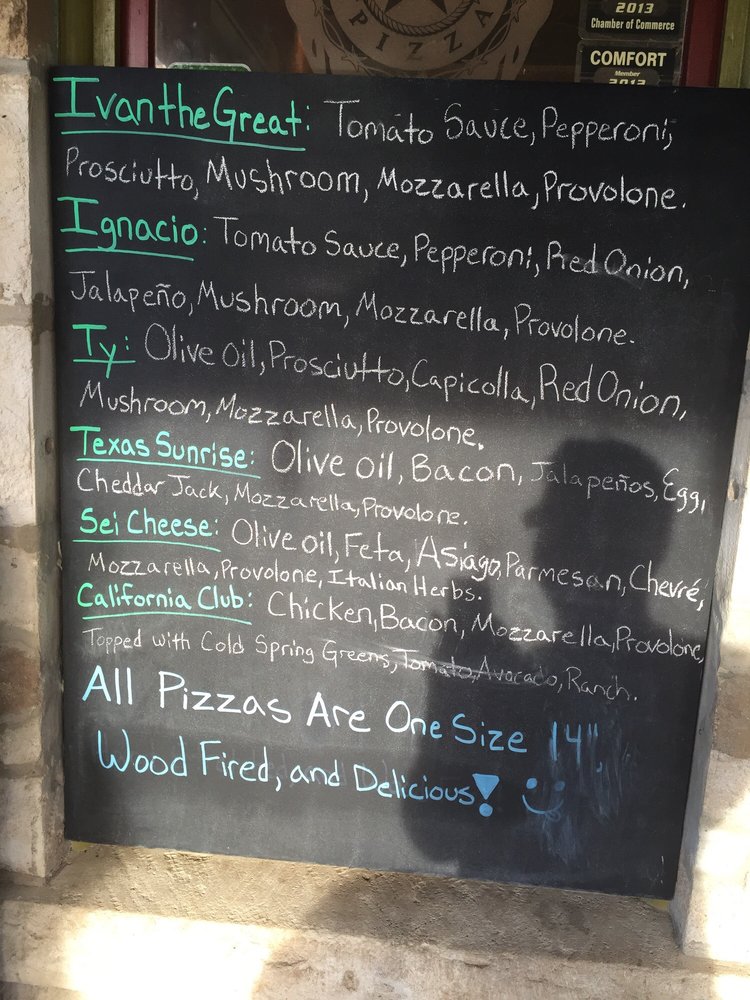 PIZZA
2013
Chamber of Commerce
COMFORT
Member
2013
Ivan the Great: Tomato Sauce, Pepperoni,
Prosciutto, Mushroom, Mozzarella, Provolone.
Ignacio: Tomato Sauce, Pepperoni, Red Onion,
Jalapeño, Mushroom, Mozzarella, Provolone.
Ty: Olive Oil, Prosciutto, Capicolla, Red Onion,
Mushroom, Mozzarella, Provolone.
Texas Sunrise: Olive oil, Bacon, Jalapeños, Egg,
Cheddar Jack, Mozzarella, Provolone.
Sei Cheese: Olive oil, Feta, Asiago, Parmesan, Chevré,
Mozzarella, Provolone, Italian Herbs.
California Club: Chicken, Bacon, Mozzarella, Provolone,
Topped with Cold Spring Greens, Tomato, Avacado, Ranch.
All Pizzas Are One Size 14",
Wood Fired, and Delicious!